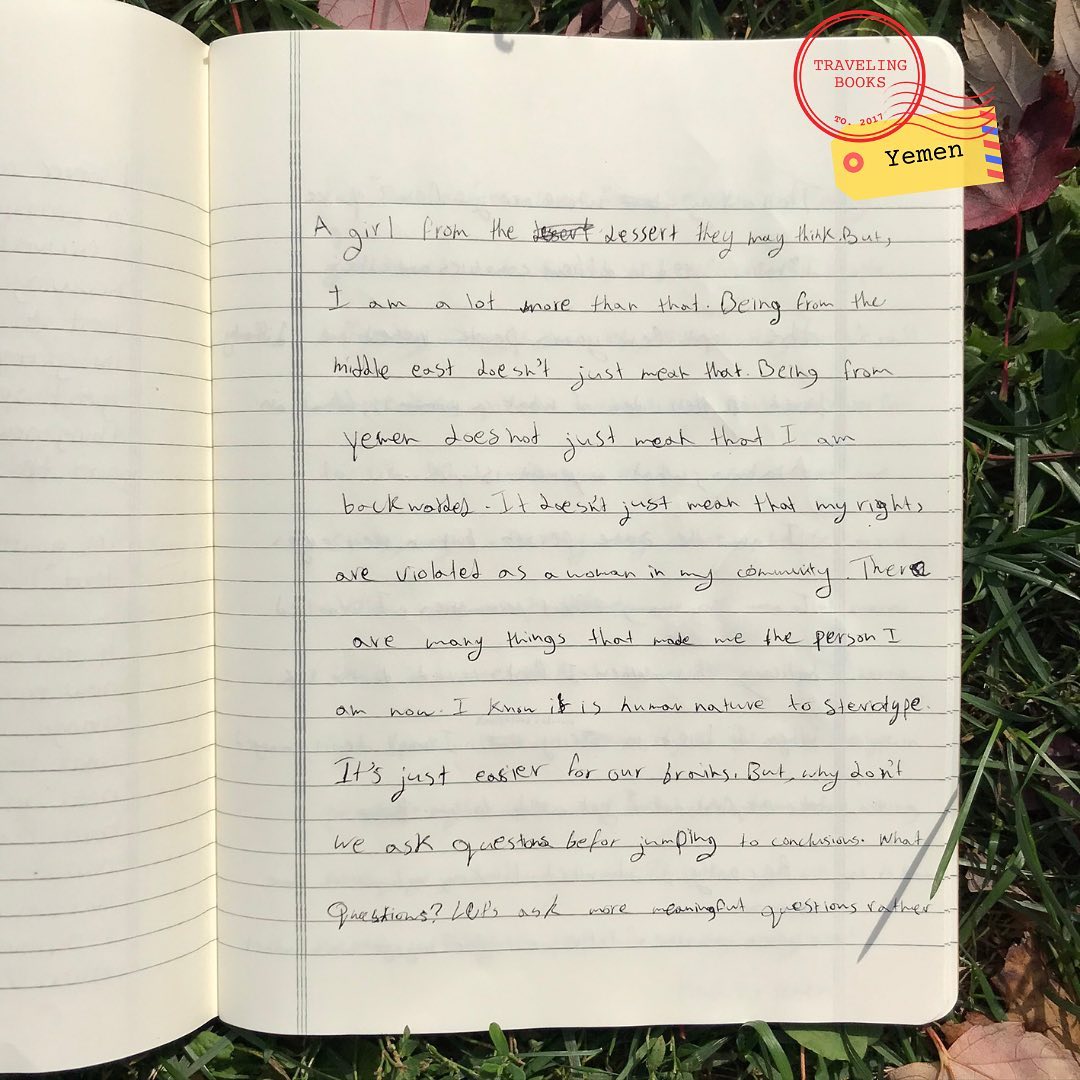 TRAVELING
BOOKS
TO. 2017
Yemen
A girl from the dessert they may think. But,
I am a lot more than that. Being from the
middle east doesn't just mean that. Being from
yemen does not just mean that I am
backwardes. It doesn't just mean that my rights
are violated as a woman in my community. There
are many things that made me the person I
am now. I know it is human nature to steriotype.
It's just easier for our brains. But, why don't
we ask questions befor jumping to conclusions. What
Questions? Let's ask more meaningful questions rather